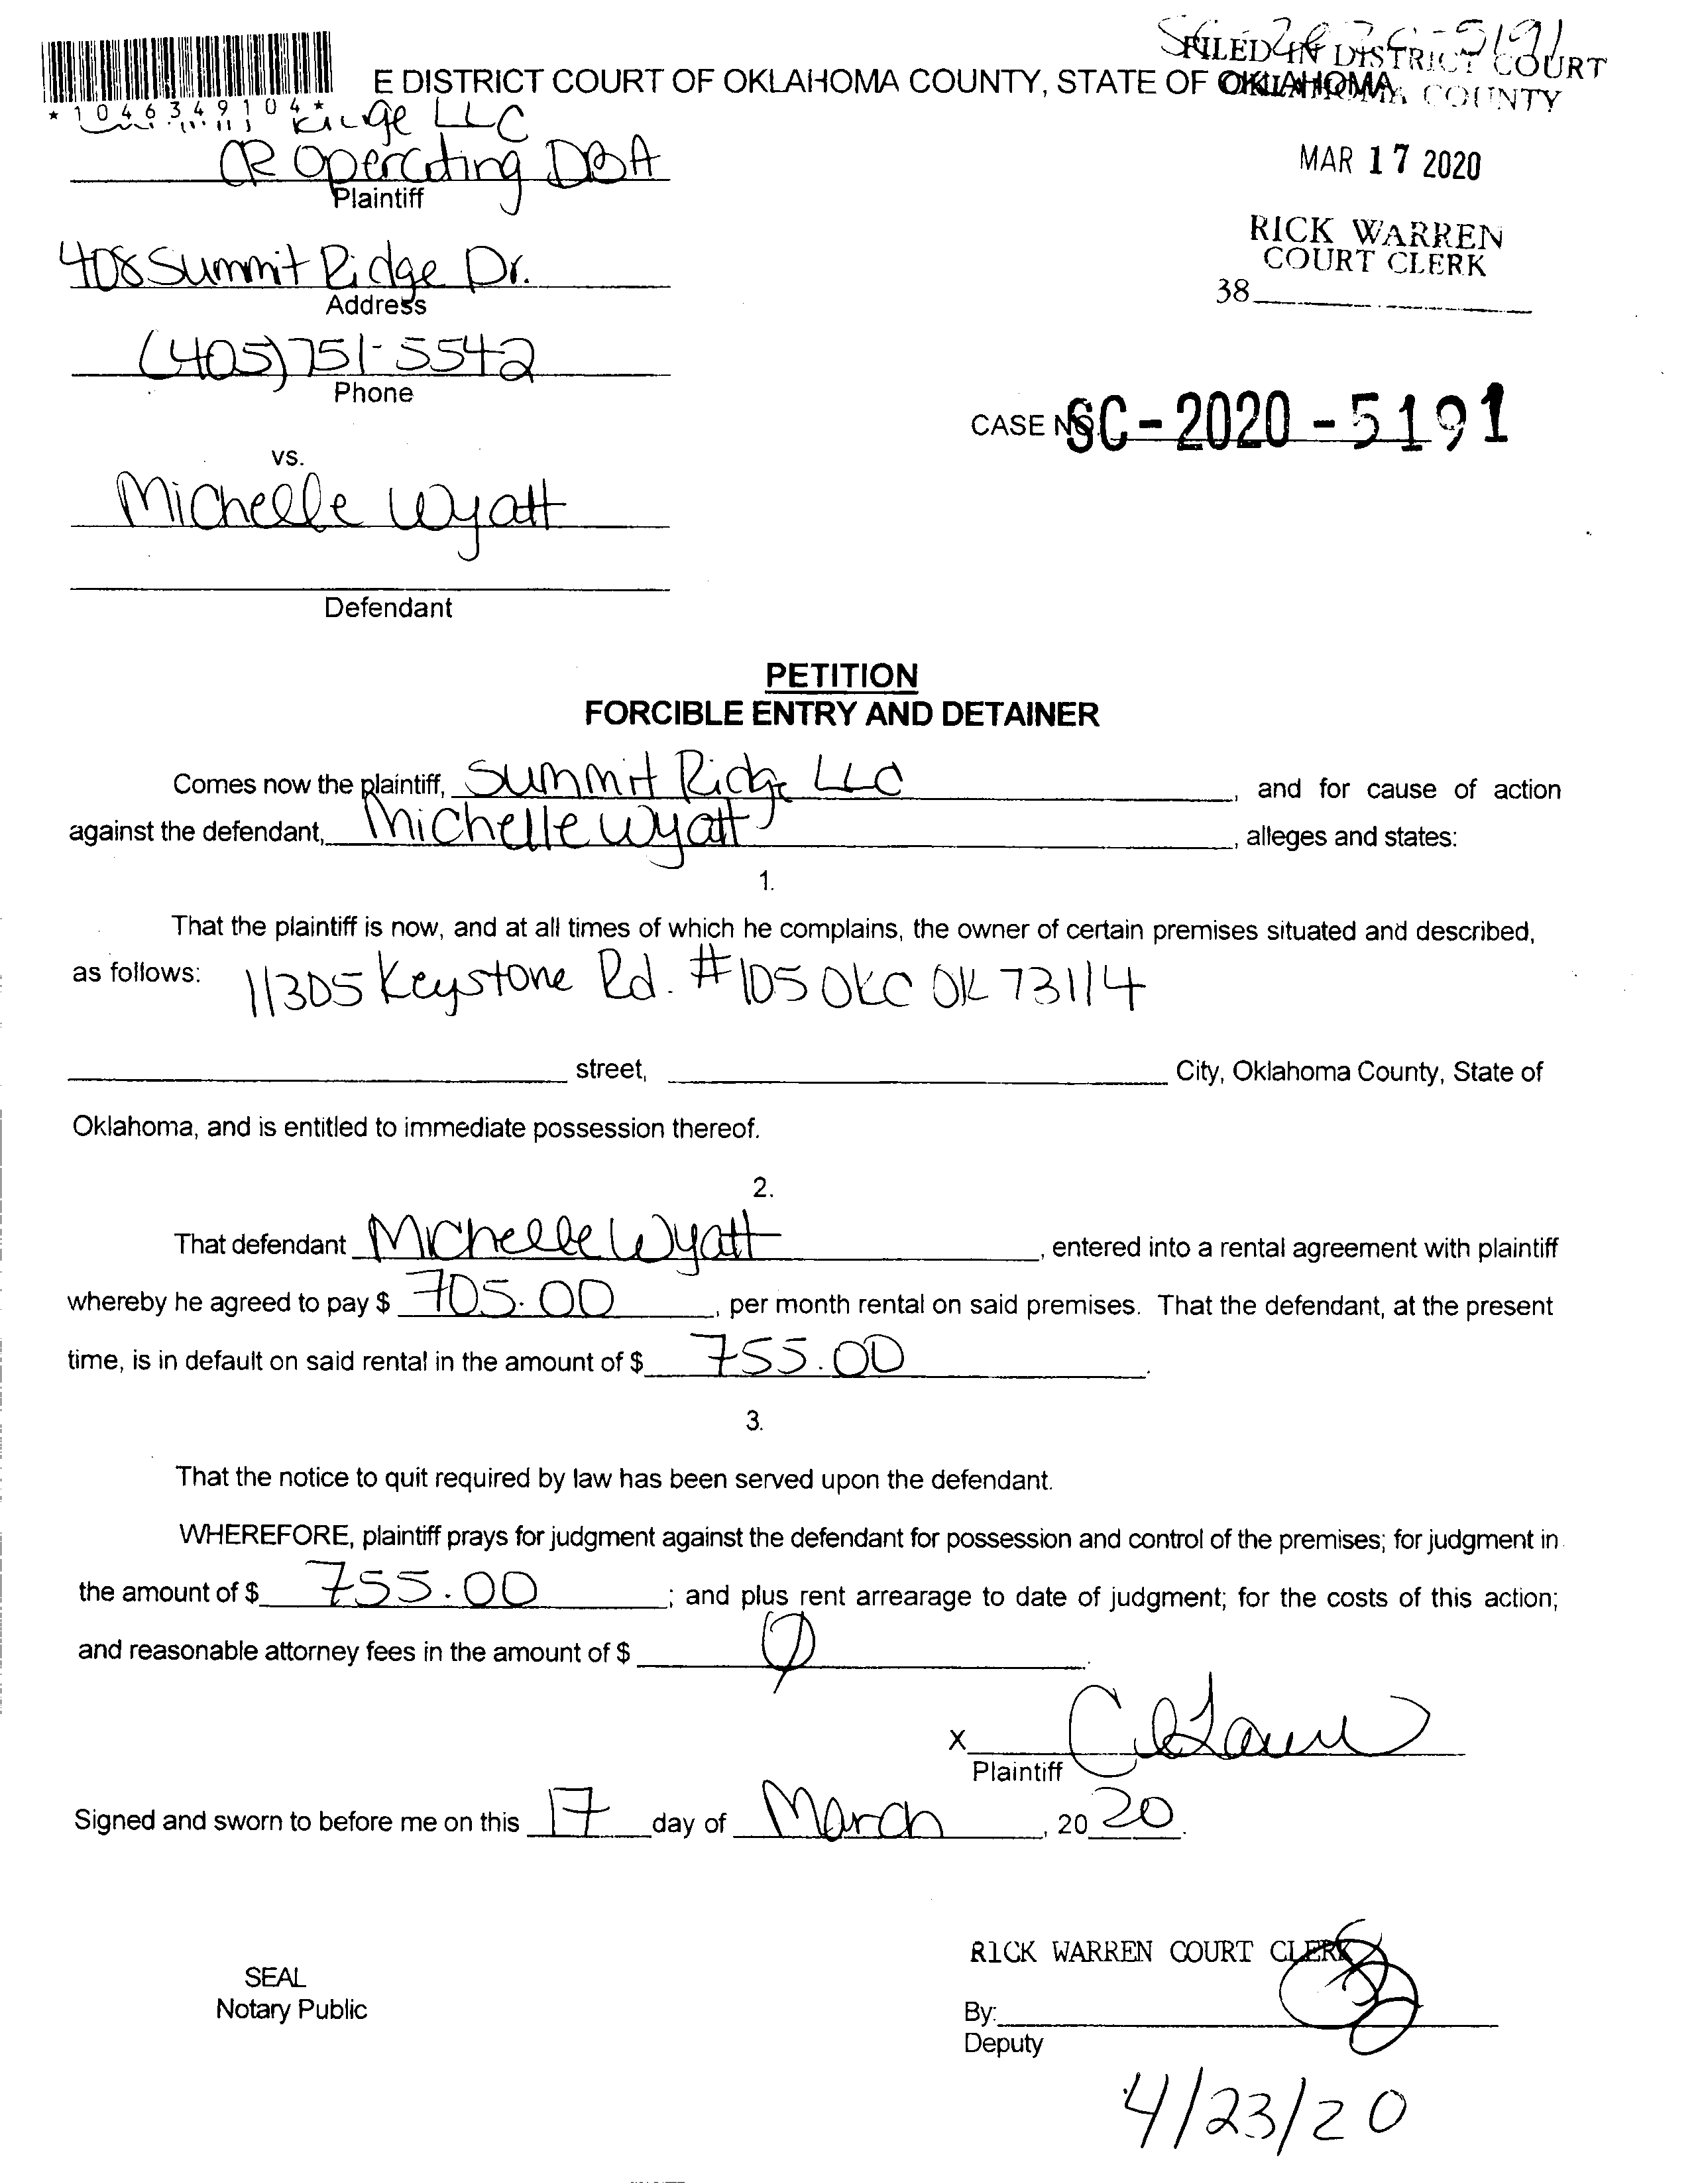 SC-2020-5191
FILED IN DISTRICT COURT
E DISTRICT COURT OF OKLAHOMA COUNTY, STATE OF OKLAHOMA
OKLAHOMA COUNTY
*1046349104*
Ridge LLC
CR Operating DBA
Plaintiff
MAR 17 2020
RICK WARREN
COURT CLERK
38
408 Summit Ridge Dr.
Address
(405) 751-5542
Phone
CASE NO. SC-2020-5191
vs.
Michelle Wyatt
Defendant
PETITION
FORCIBLE ENTRY AND DETAINER
Comes now the plaintiff, Summit Ridge LLC, and for cause of action
against the defendant, Michelle Wyatt, alleges and states:
1.
That the plaintiff is now, and at all times of which he complains, the owner of certain premises situated and described,
as follows: 11305 Keystone Rd. #105 OKC OK 73114
street, City, Oklahoma County, State of
Oklahoma, and is entitled to immediate possession thereof.
2.
That defendant Michelle Wyatt, entered into a rental agreement with plaintiff
whereby he agreed to pay $ 705.00, per month rental on said premises. That the defendant, at the present
time, is in default on said rental in the amount of $ 755.00.
3.
That the notice to quit required by law has been served upon the defendant.
WHEREFORE, plaintiff prays for judgment against the defendant for possession and control of the premises; for judgment in
the amount of $ 755.00; and plus rent arrearage to date of judgment; for the costs of this action;
and reasonable attorney fees in the amount of $ 0.
X
Plaintiff
Signed and sworn to before me on this 17 day of March, 2020.
RICK WARREN COURT CLERK
SEAL
Notary Public
By:
Deputy
4/23/20